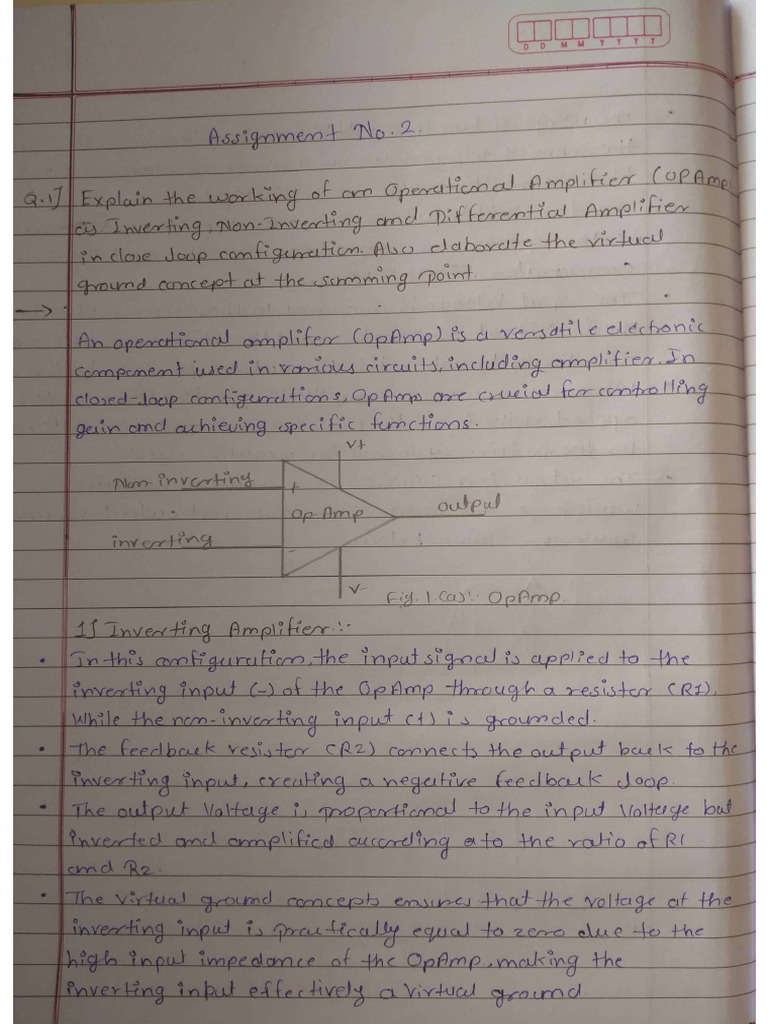 D D M M Y Y Y Y
Assignment No. 2.
Q.1] Explain the working of an Operational Amplifier (OPAmp)
as Inverting, Non-Inverting and Differential Amplifier
in close loop configuration. Also elaborate the virtual
ground concept at the summing point.
→
An operational amplifer (OpAmp) is a versatile electronic
component used in various circuits, including amplifier. In
closed-loop configurations, OpAmp are crucial for controlling
gain and achieving specific functions.
V+
Non-inverting
+
Op-Amp
output
inverting
-
V-
Fig. 1 (a):- OpAmp.
1] Inverting Amplifier:-
• In this configuration, the input signal is applied to the
inverting input (-) of the OpAmp through a resistor (R1).
While the non-inverting input (+) is grounded.
• The feedback resistor (R2) connects the output back to the
inverting input, creating a negative feedback loop.
• The output Voltage is proportional to the input Voltage but
inverted and amplified according to the ratio of R1
and R2.
• The virtual ground concepts ensures that the voltage at the
inverting input is practically equal to zero due to the
high input impedance of the OpAmp, making the
inverting input effectively a virtual ground